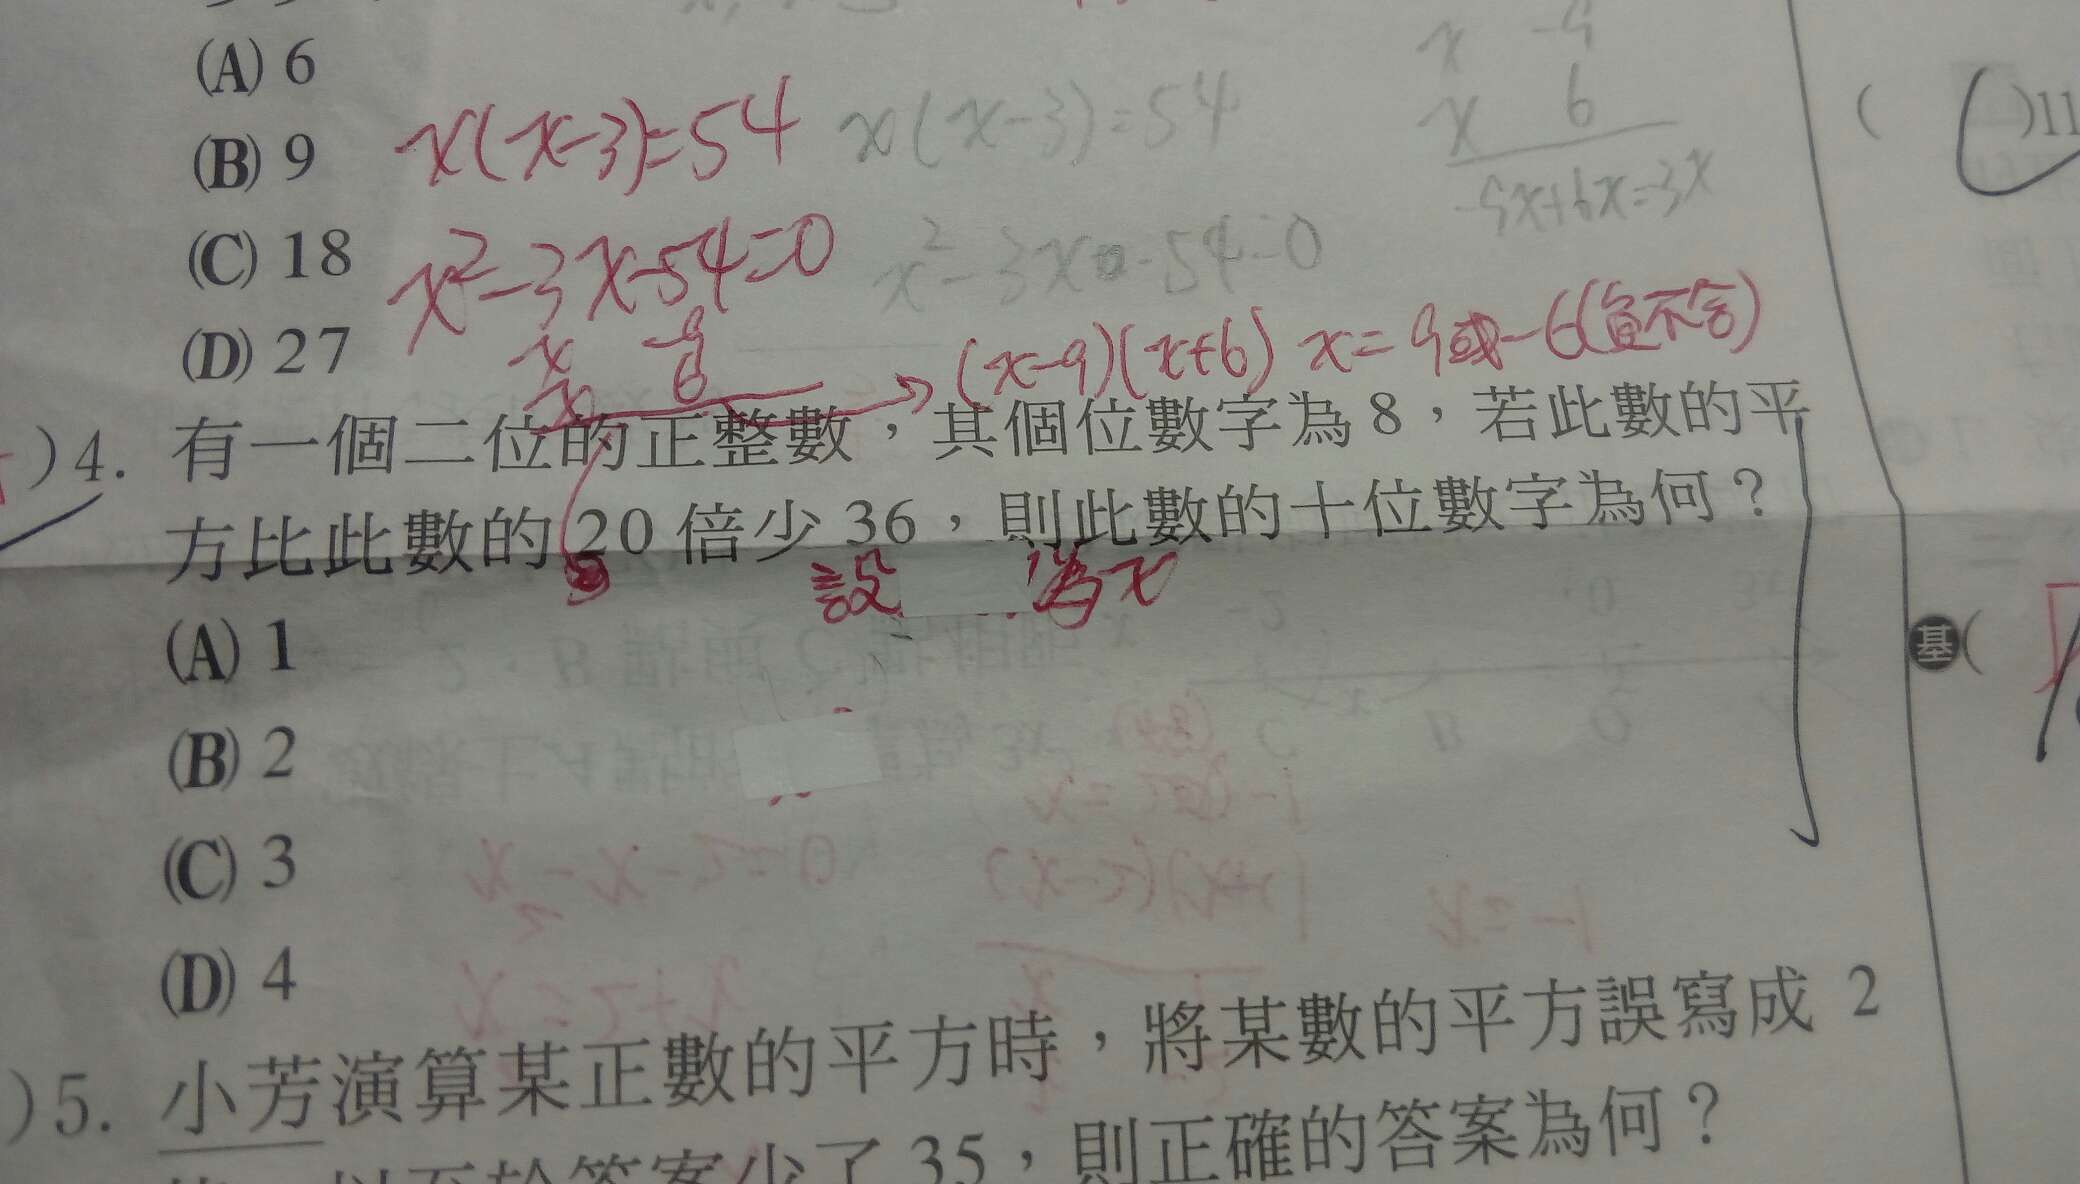 (A) 6
(B) 9
(C) 18
(D) 27
x(x-3)=54
x²-3x-54=0
x -9
x 6
(x-9)(x+6) x=9或-6(負不合)
x(x-3)=54
x²-3x-54=0
x -9
x 6
-9x+6x=-3x
)4. 有一個二位的正整數，其個位數字為 8，若此數的平
方比此數的 20 倍少 36，則此數的十位數字為何？
設 為x
(A) 1
(B) 2
(C) 3
(D) 4
)5. 小芳演算某正數的平方時，將某數的平方誤寫成 2
以至於答案少了 35，則正確的答案為何？
( )11
基(